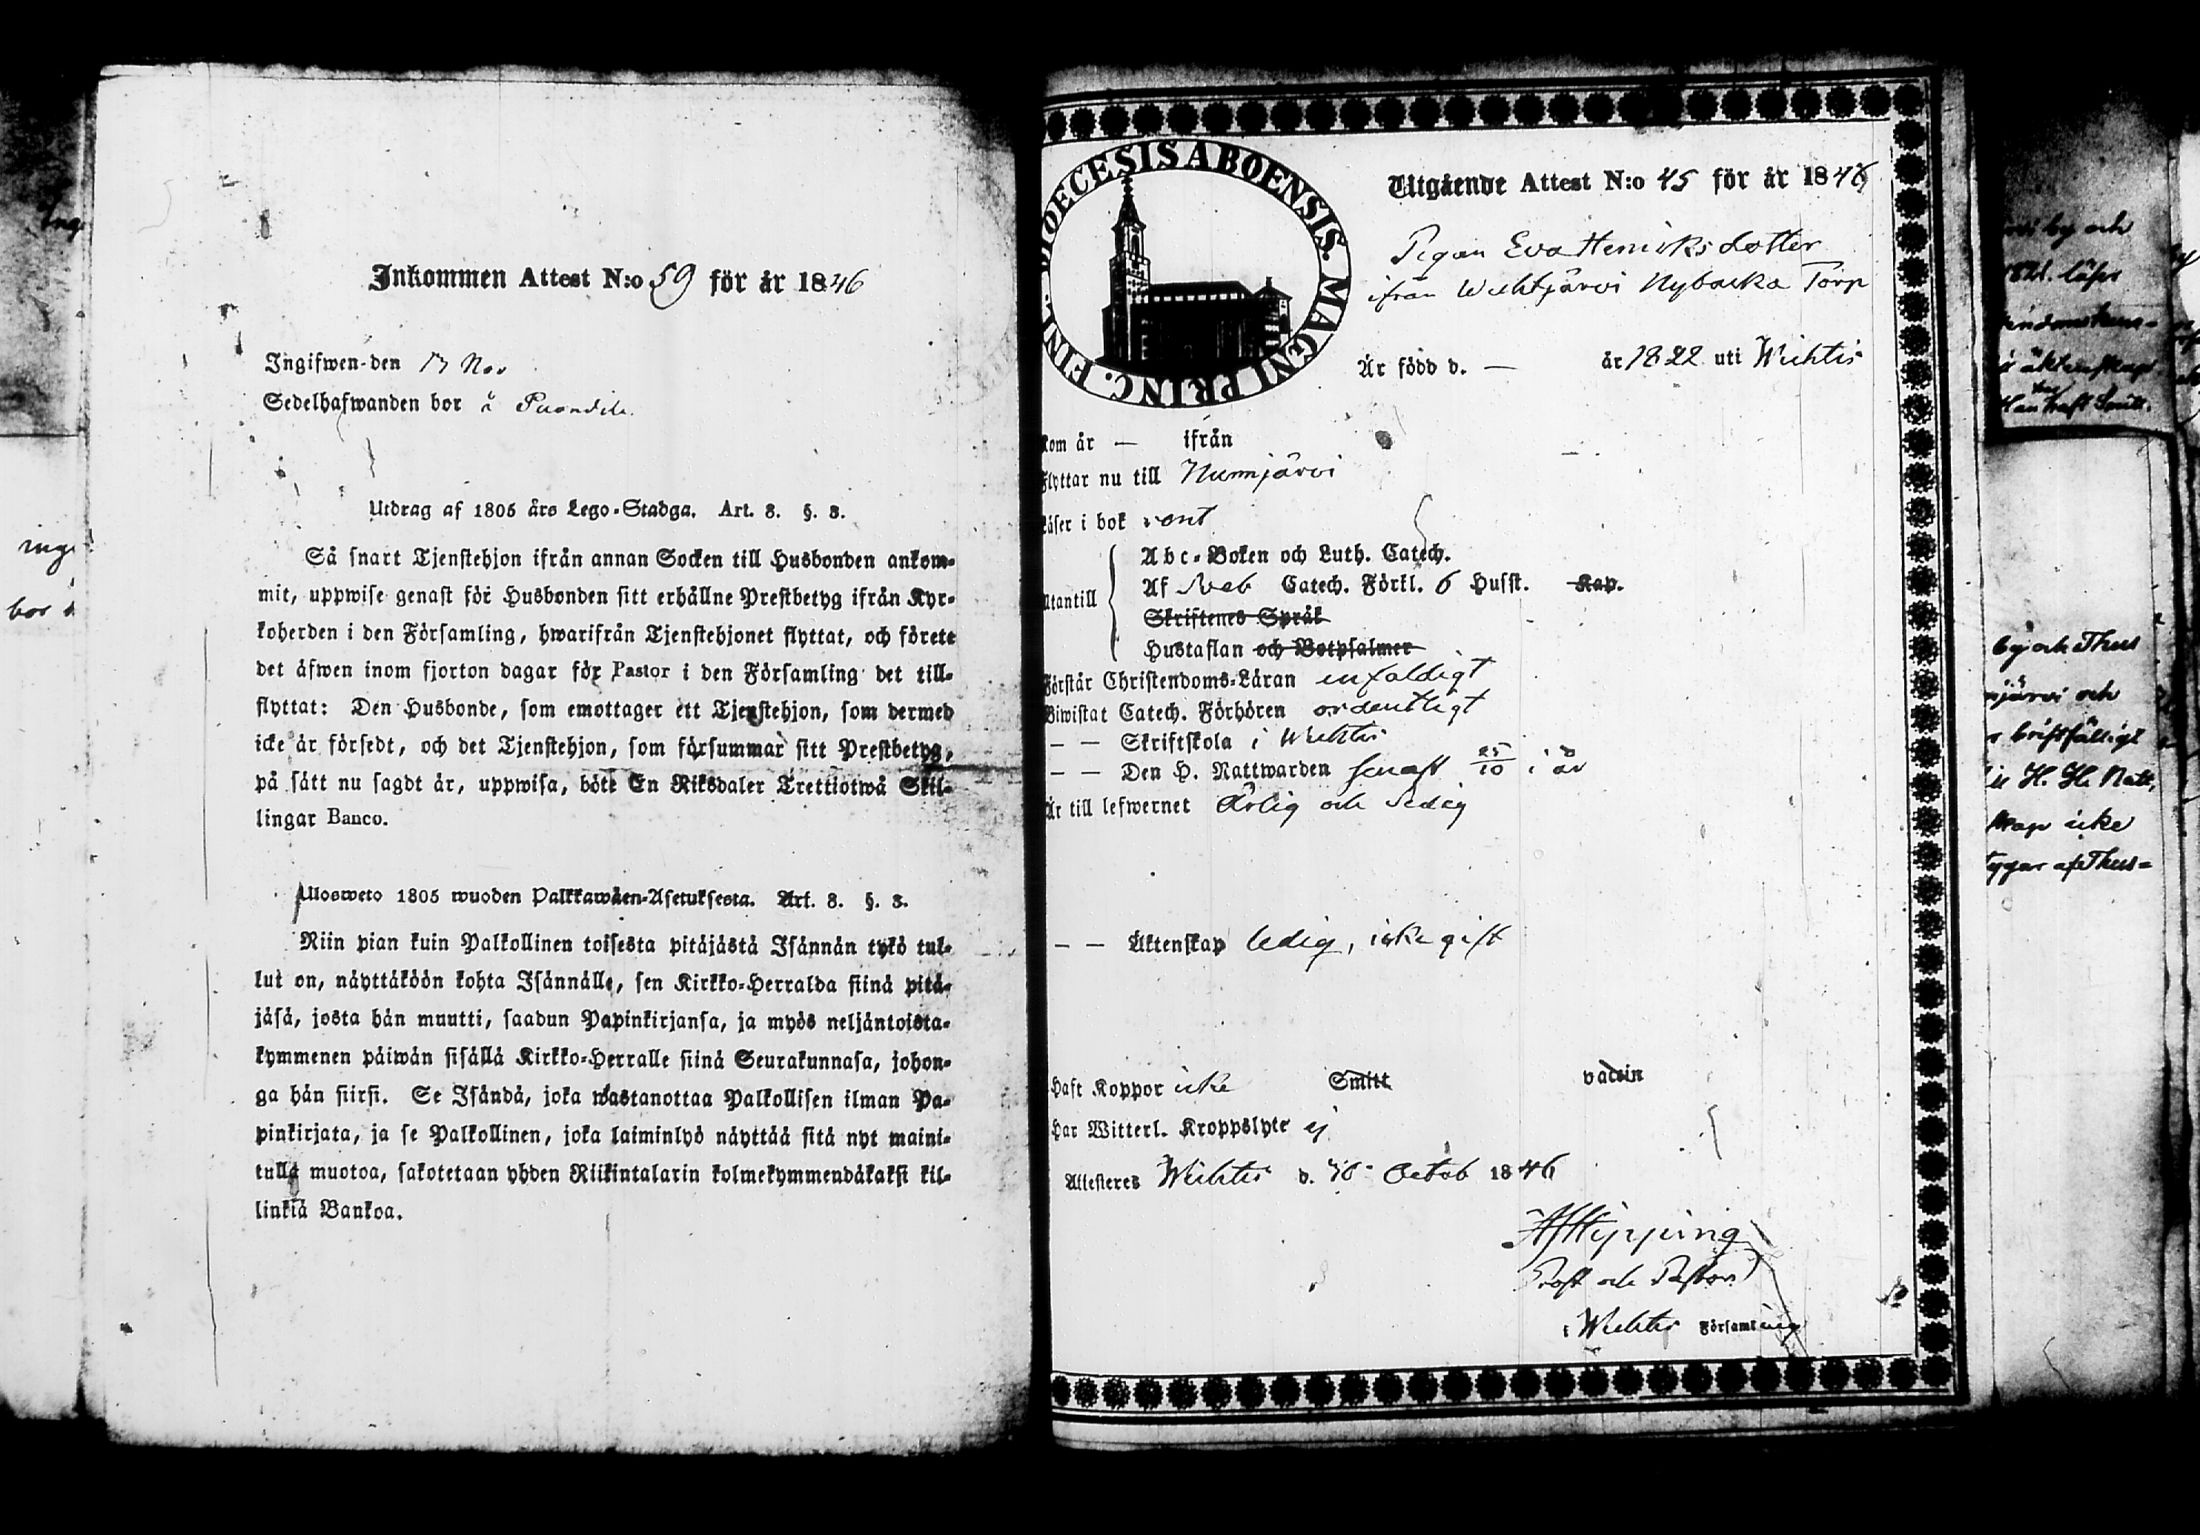 Inkommen Attest N:o 59 för år 1846
Ingifwen den 13 Nov
Sedelhafwanden bor å
Utdrag af 1805 års Lego-Stadga. Art. 8. §. 3.
Så snart Tjenstehjon ifrån annan Socken till Husbonden ankom-
mit, uppwise genast för Husbonden sitt erhållne Prestbetyg ifrån Kyr-
koherden i den Församling, hwarifrån Tjenstehjonet flyttat, och förete
det äfwen inom fjorton dagar för Pastor i den Församling det till-
flyttat: Den Husbonde, som emottager ett Tjenstehjon, som dermed
icke är försedt, och det Tjenstehjon, som försummar sitt Prestbetyg,
på sätt nu sagdt är, uppwisa, böte En Riksdaler Trettiotwå Skil-
lingar Banco.
Ulosweto 1805 wuoden Palkkawäen-Asetuksesta. Art. 8. §. 3.
Niin pian kuin Palkollinen toisesta pitäjästä Isännän tykö tul-
lut on, näyttäköön kohta Isännälle, sen Kirkko-Herralda siinä pitä-
jäsä, josta hän muutti, saadun Papinkirjansa, ja myös neljäntoista-
kymmenen päiwän sisällä Kirkko-Herralle siinä Seurakunnasa, johon-
ga hän siirsi. Se Isändä, joka wastanottaa Palkollisen ilman Pa-
pinkirjata, ja se Palkollinen, joka laiminlyö näyttää sitä nyt maini-
tulla muotoa, sakotetaan yhden Riikintalarin kolmekymmendäkaksi kil-
linkiä Bankoa.
DIOECESIS ABOENSIS. MAGNI PRINC. FINL.
Utgående Attest N:o 45 för år 1846
Pigan Eva Henriksdotter
ifrån Wichtjärvi Nybacka Torp
Är född d. — år 1822 uti Wichtis
kom år — ifrån
Flyttar nu till Nummjärvi
Läser i bok rent
Utantill
Abc-Boken och Luth. Catech.
Af Sveb Catech. Förkl. 6 Husst. Kap.
Skriftenes Språk
Hustaflan och Botpsalmer
Förstår Christendoms-Läran enfaldigt
Biwistat Catech. Förhören ordentligt
— — Skriftskola i Wichtis
— — Den H. Nattwarden senast 25/10 i år
Är till lefwernet Ärlig och Sedig
— — Äktenskap ledig, icke gift
Haft Koppor icke Smitt vaccin
Har Witterl. Kroppslyte ej
Attesteres Wichtis d. 30 Octob 1846
AfHipping
Prost och Pastor
i Wichtis Församling
by och
läser
äktenskap
by och Thus
järvi och
bristfälligt
H. H. Natt,
icke